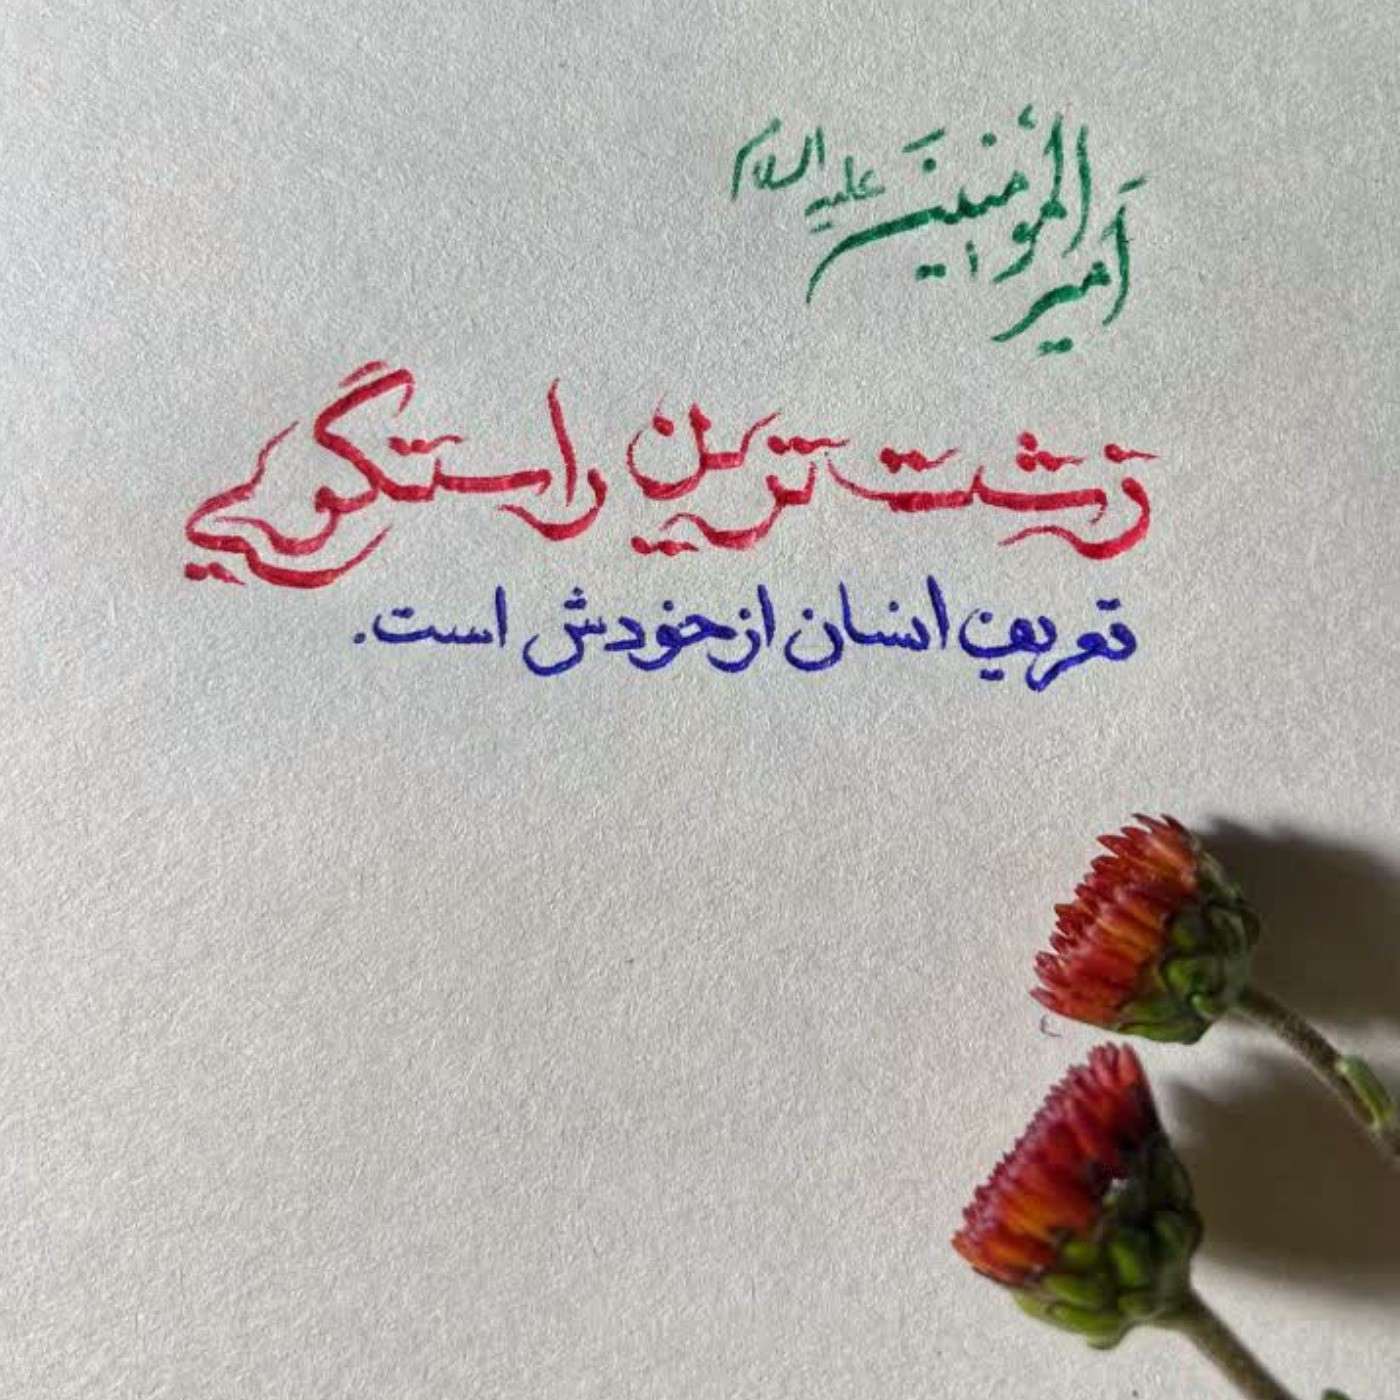 أمیرالمؤمنینَ علیه السلام
زشت ترین راستگویی
تعریف انسان از خودش است.